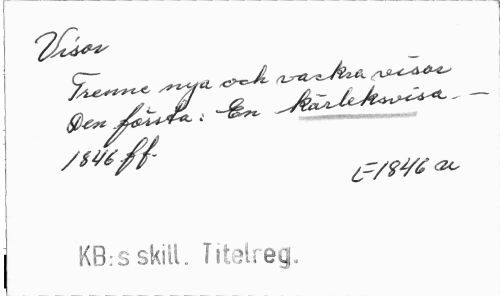 Visor
Trenne nya och vackra visor
Den första: En kärleksvisa. —
1846 ff.
E 1846 au
KB:s skill. Titelreg.